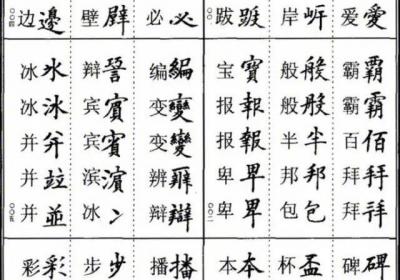 边邊 壁壁 必必 跋跋 岸岸 爱愛
冰氷 辩 编編 宝寳 般般 霸覇
冰冰 宾賓 变變 报報 般般 霸霸
并并 宾賓 变變 报報 半半 百佰
并竝 滨濱 辨辨 卑卑 邦邦 拜拜
并並 冰冫 辩辯 卑卑 包包 拜拜
彩彩 步步 播播 本本 杯盃 碑碑